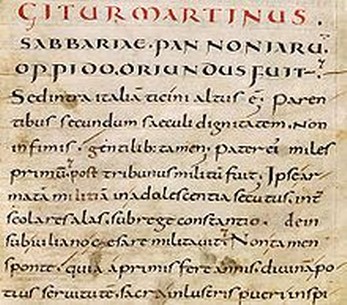 GITUR MARTINUS .
SABBARIAE · PANNONIARU̅ ·
OPPIDO · ORIUNDUS FUIT ·
Sed intra italiā ticini altus ē ; Paren
tibus secundum saeculi dignitatem · Non
infimis · gentilib; tamen · Pater ei miles
primū post tribunus militū fuit · Ipse ar
mata militiā in adolescentia secutus · int̄
scolares alas · sub rege constantio · dein
sub iuliano cęsare militavit · Non tamen
sponte · quia a primis fere annis · divina po
tius servitute · sacra inlustris pueri inspi